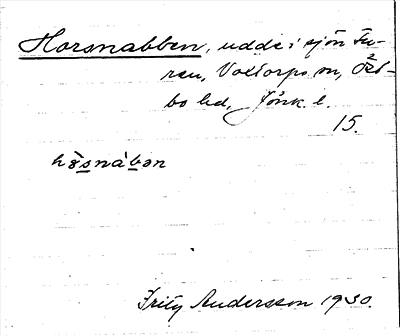 Horsnabben, udde i sjön Fu-
ren, Voxtorps sn, Öst-
bo hd, Jönk. l.
15.
hòsnàbən
Fritz Andersson 1930.